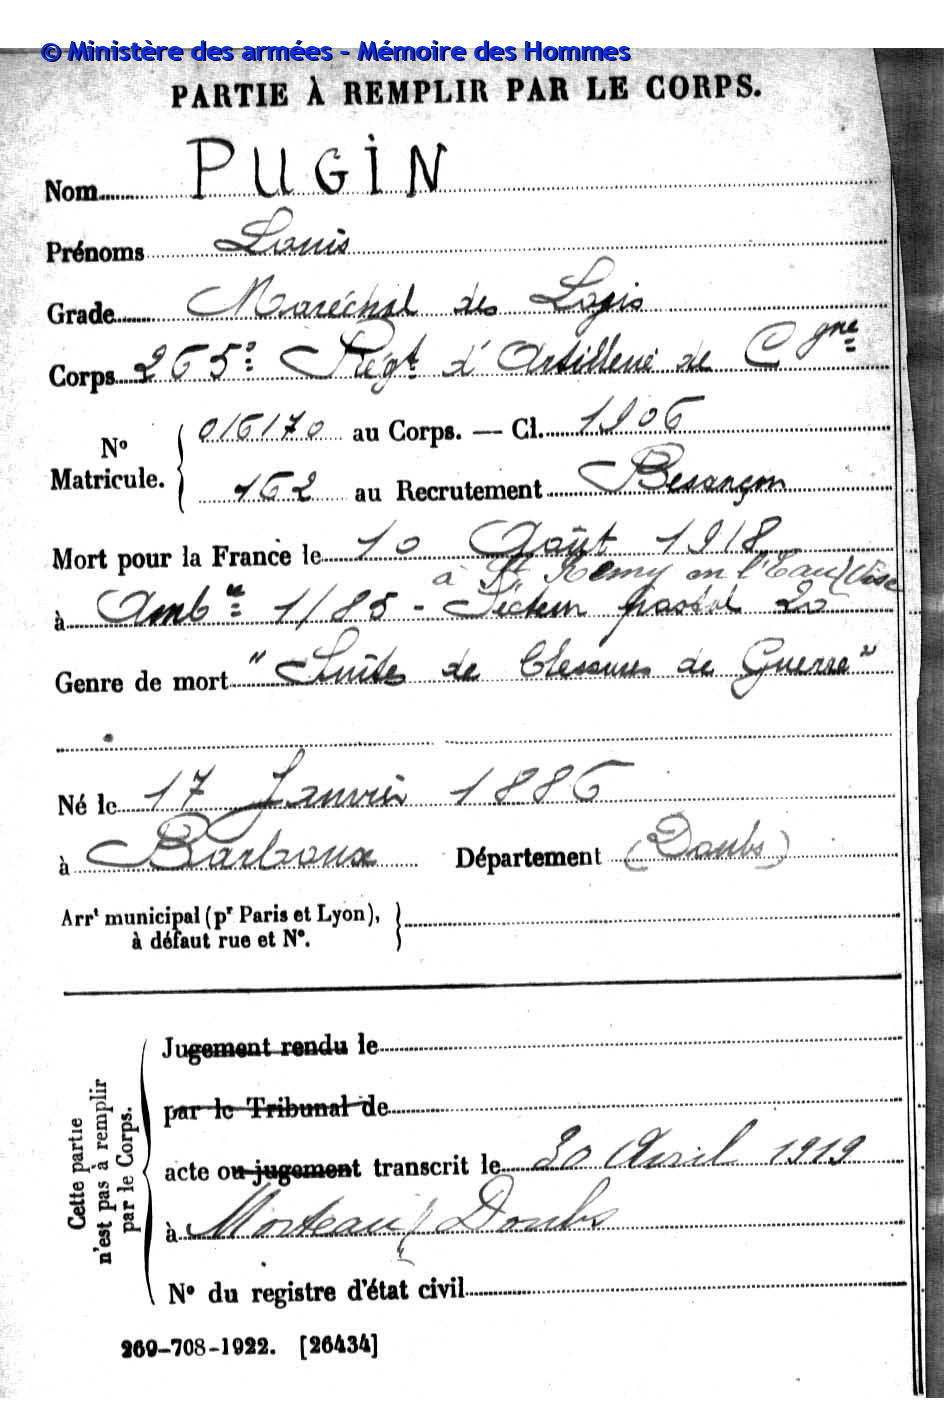 © Ministère des armées - Mémoire des Hommes
PARTIE À REMPLIR PAR LE CORPS.
Nom PUGIN
Prénoms Louis
Grade Maréchal des Logis
Corps 265e Régt d'Artillerie de Cgne
No Matricule. 016170 au Corps. — Cl. 1906
162 au Recrutement Besançon
Mort pour la France le 10 Août 1918
à St Remy en l'Eau (Oise
à Ambce 1/85 - Secteur postal 20
Genre de mort "Suites de blessures de Guerre"
Né le 17 Janvier 1886
à Barboux Département (Doubs)
Arrt municipal (pr Paris et Lyon),
à défaut rue et No.
Cette partie
n'est pas à remplir
par le Corps.
Jugement rendu le
par le Tribunal de
acte ou jugement transcrit le 30 Avril 1919
à Morteau / Doubs
No du registre d'état civil
269-708-1922. [26434]